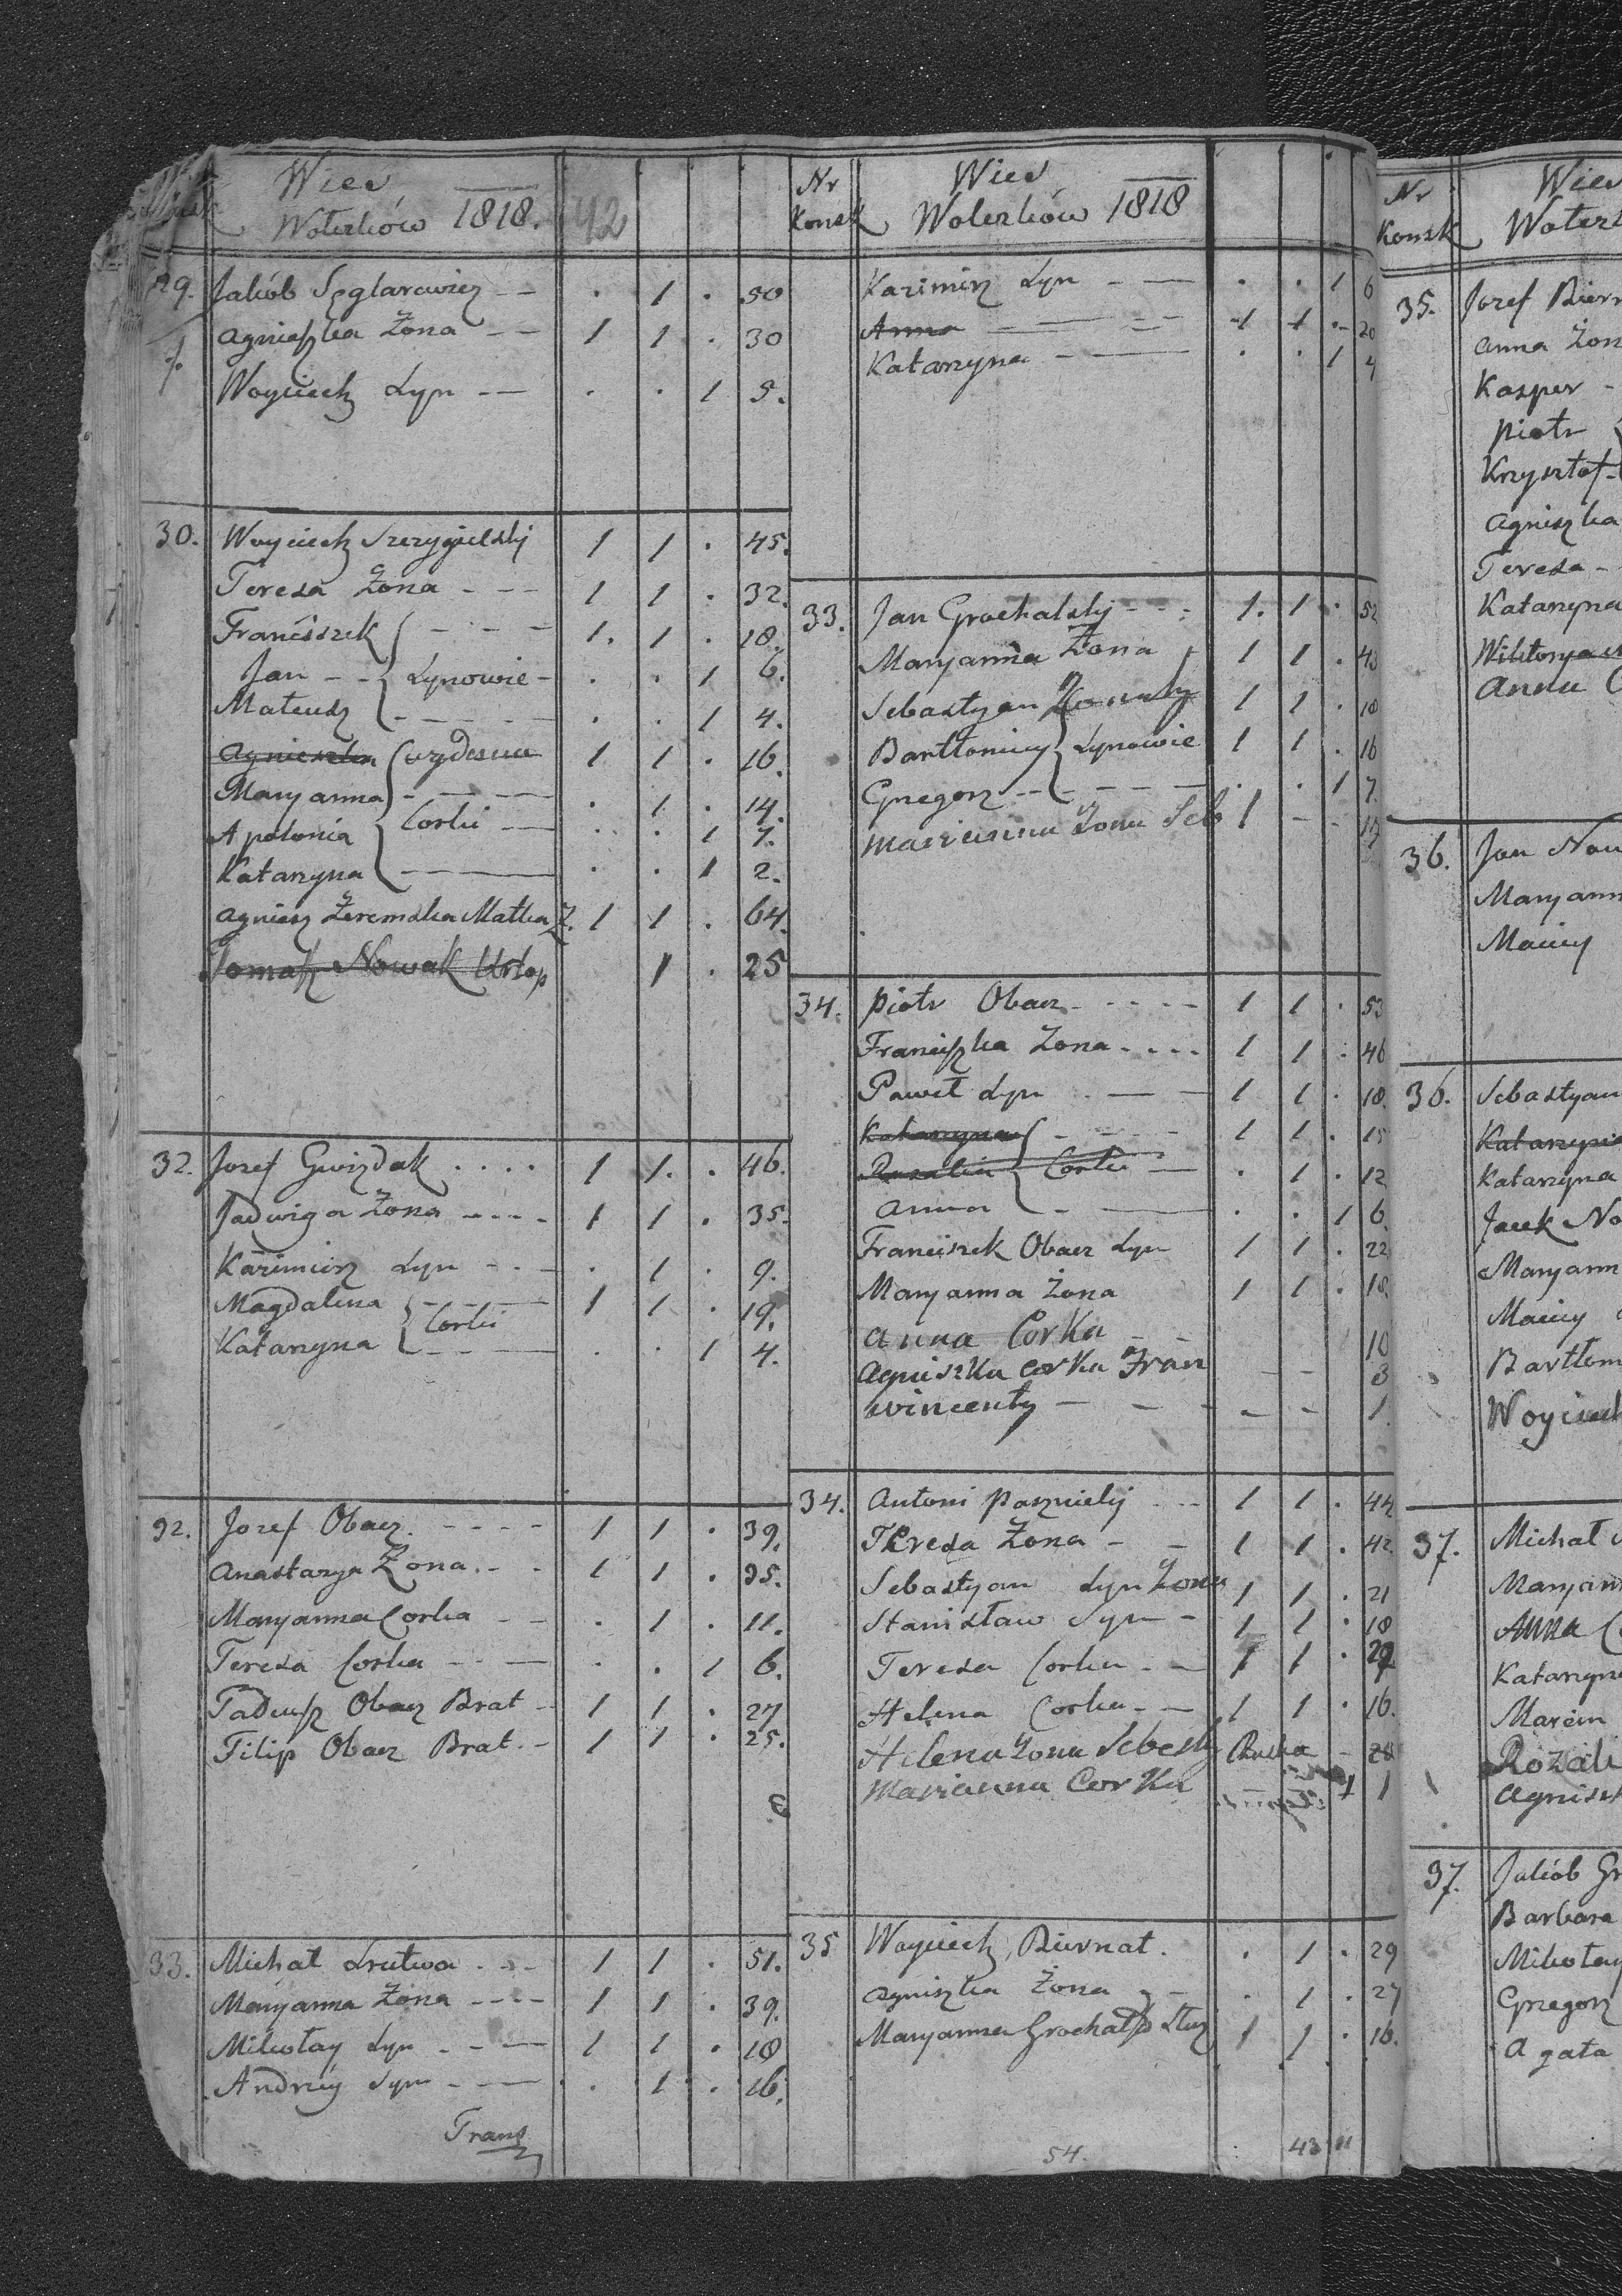 Wies
Woterków 1818. 42
29. Jakób Sęglarowicz . 1 . 50
Agnieszka Żona 1 1 . 30
Woyciech Syn . . 1 5.
30. Woyciech Szczygielsky 1 1 . 45.
Teresa Żona 1 1 . 32.
Franciszek 1. 1 . 18.
Jan Synowie . . 1 6.
Mateusz . . 1 4.
Agnieszka 1 1 . 16.
Maryanna . 1 . 14.
Apolonia Corki . . 1 7.
Katarzyna . . 1 2.
Agniesz Żeremska Matka Ż. 1 1 . 64.
Tomasz Nowak Urlop 1 . 25
32. Jozef Gwizdak 1 1. . 46.
Jadwiga Żona 1 1 . 35.
Kazimierz Syn . 1 . 9.
Magdalena 1 1 . 19.
Katarzyna Corki . . 1 4.
32. Jozef Obacz 1 1 . 39.
Anastazya Żona 1 1 . 35.
Maryanna Corka . 1 . 11.
Teresa Corka . . 1 6.
Tadeusz Obacz Brat 1 1 . 27
Filip Obacz Brat 1 1 . 25.
33. Michał Drutwa 1 1 . 51.
Maryanna Żona 1 1 . 39.
Mikołay Syn 1 1 . 18
Andrzey Syn . 1 . 16.
Trans
Nr Konsk
Wies
Woterków 1818
Kazimirz Syn . . 1 6
Anna 1 1 . 20
Katarzyna . . 1 4
33. Jan Grochalsky 1. 1 . 52
Maryanna Żona 1 1 . 43
Sebastyan 1 1 . 18
Bartłomiey Synowie 1 1 . 16
Grzegorz . . 1 7.
Marianna Żona Seb 1
34. Piotr Obacz 1 1 . 53
Franciszka Żona 1 1 . 46
Paweł Syn 1 1 . 18.
Katarzyna 1 1 . 15
Rozalia Corki . 1 . 12
Anna . . 1 6.
Franciszek Obacz Syn 1 1 . 22
Maryanna Żona 1 1 . 18.
Anna Corka 10
Agniszka corka Fran 3
Wincenty 1
34. Antoni Pasznicky 1 1 . 44
Theresa Żona 1 1 . 42.
Sebastyan Syn Żona 1 1 . 21
Stanisław Syn 1 1 . 18
Teresa Corka 1 1 .
Helena Corka 1 1 . 16.
Helena Żona Sebesty
Marianna Corka 1 1
35 Woyciech Biernat . 1 . 29
Agniszka Żona . 1 . 27
Maryanna Grochals Słuz 1 1 . 16.
54. 43 11
Nr Konsk
Wies
35. Jozef
Anna Żon
Kasper
Piotr
Krzysztof
Agniszka
Teresa
Katarzyna
Wiktorya
Anna
36. Jan
Maryann
Maciey
36. Sebastyan
Katarzyna
Katarzyna
Jacek
Maryann
Maciey
Bartłom
Woyciech
37. Michał
Maryann
Anna
Katarzyn
Marcin
Rozali
Agnisz
37. Jakób Gr
Barbara
Mikołay
Grzegorz
Agata